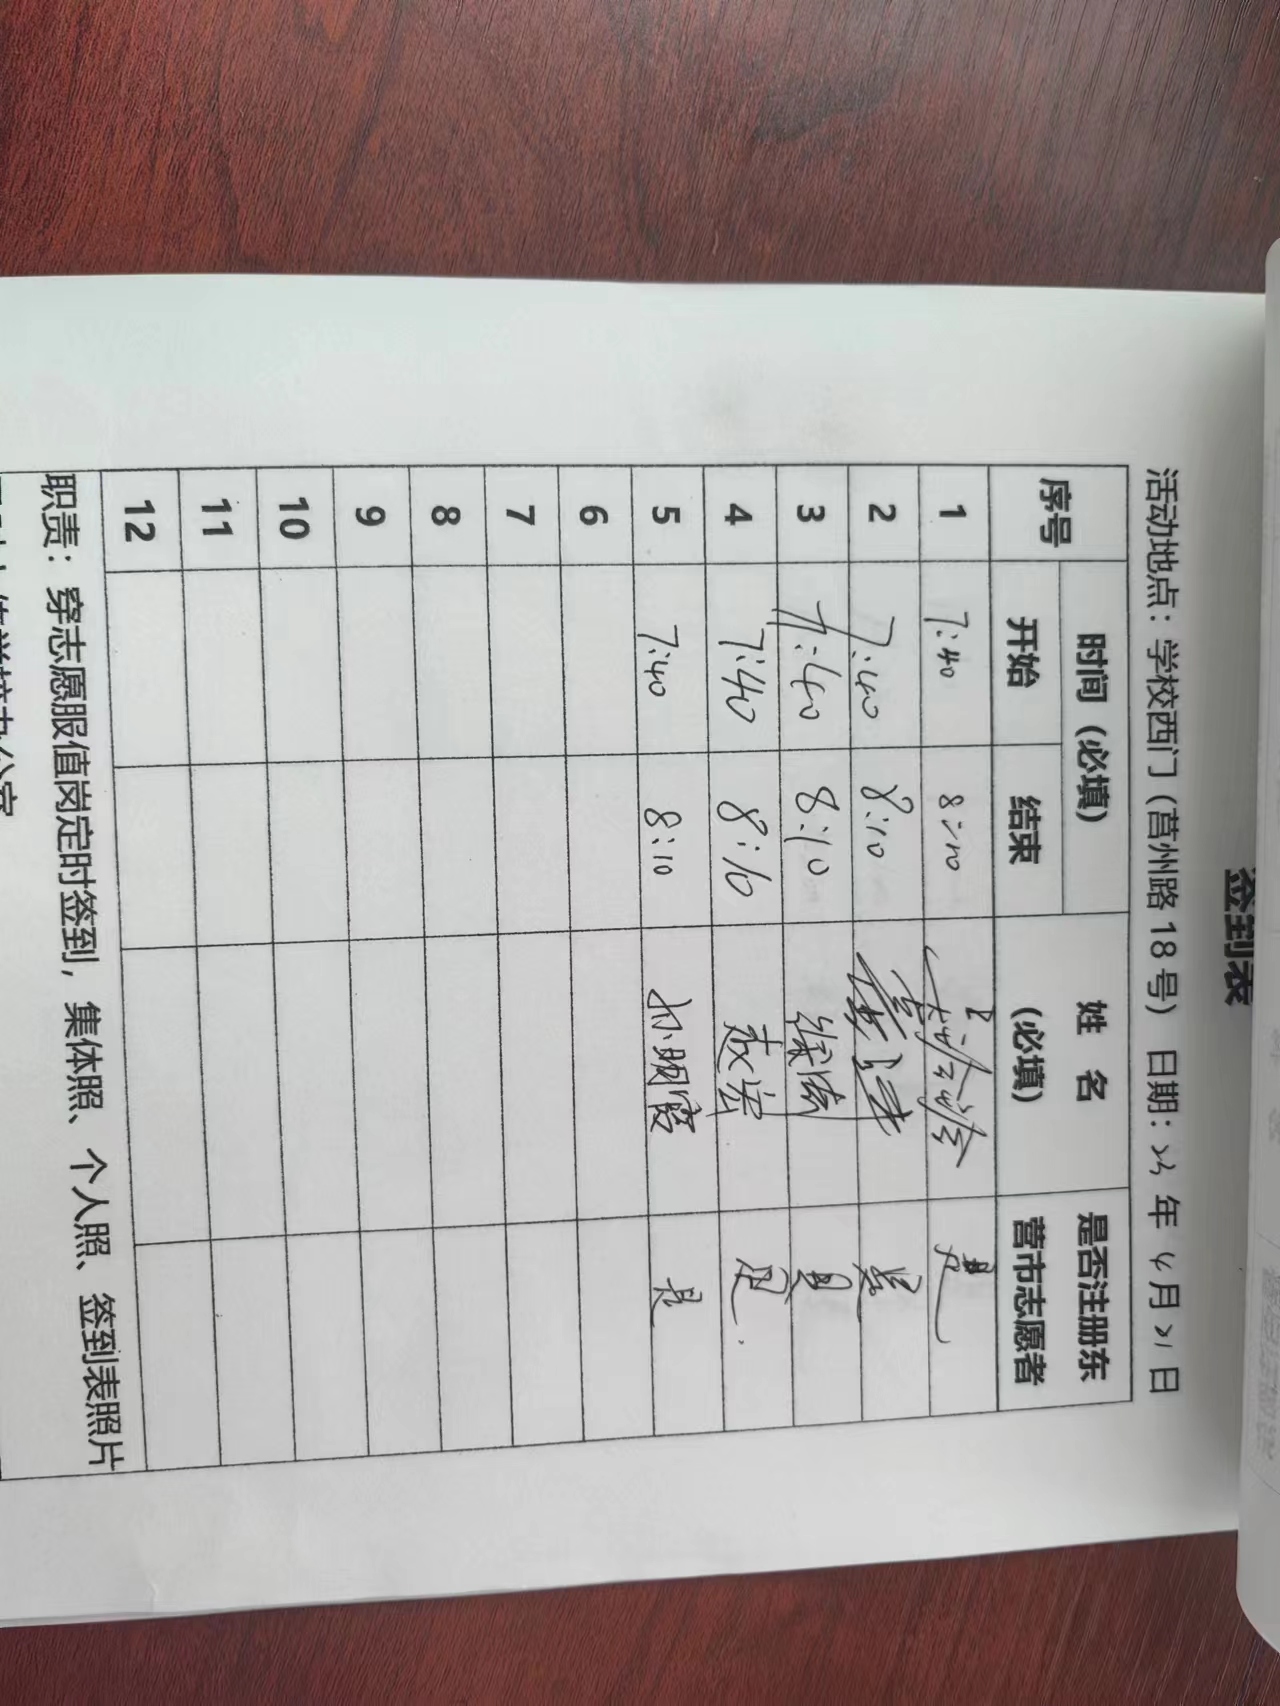 签到表
活动地点：学校西门（莒州路18号） 日期：23年4月21日
序号 时间（必填） 姓 名（必填） 是否注册东营市志愿者
开始 结束
1 7:40 8:10 是
2 7:40 8:10 是
3 7:40 8:10 是
4 7:40 8:10 是
5 7:40 8:10 孙明霞 是
6
7
8
9
10
11
12
职责：穿志愿服值岗定时签到，集体照、个人照、签到表照片